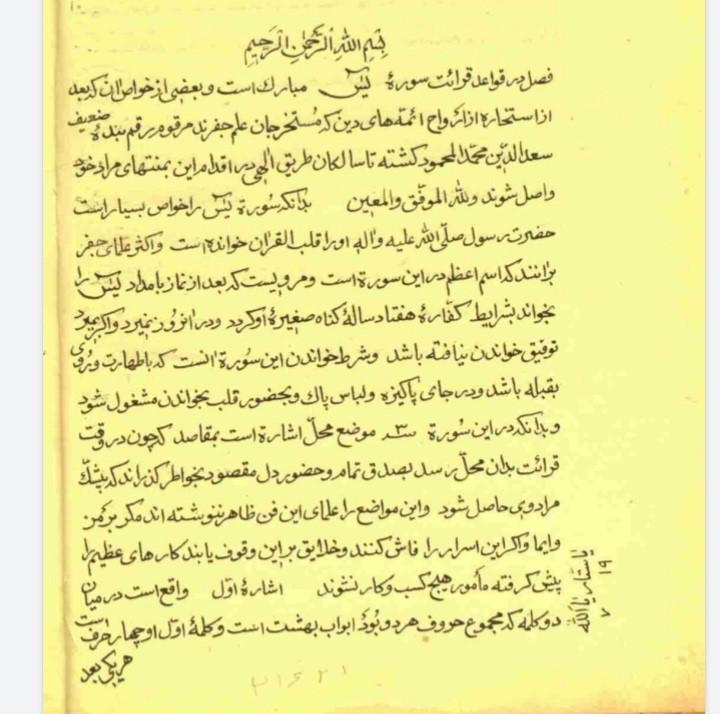 بِسْمِ اللهِ الرَّحْمٰنِ الرَّحِيمِ
فصل در قواعد قرائت سورهٔ يٰسٓ مبارك است و بعضى از خواص ان كه بعد
از استخاره از ارواح ائمّه هاى دين كه مُستخرجان علم جفرند مرقوم رقم بندهٔ ضعيف
سعد الدّين محمّد المحمود كشته تا سالكان طريق الٰهى در اقدام اين بمنتهاى مراد خود
واصل شوند ولله الموفّق والمعين بدانكه سُورة يٰسٓ را خواص بسيار است
حضرت رسول صلّى الله عليه واله او را قلب القران خوانده است واكثر علماى جفر
برانند كه اسم اعظم در اين سورة است و مرويست كه بعد از نماز بامداد يٰسٓ را
بخواند بشرايط كفّارهٔ هفتاد ساله كناه صغيرهٔ او كردد و در انروز نميرد و اكر بميرد
توفيق خواندن نيافته باشد وشرط خواندن اين سُورة انست كه باطهارت و روى
بقبله باشد و در جاى پاكيزه ولباس پاك و بحضور قلب بخواندن مشغول شود
و بدانكه در اين سُورة ٣ موضع محلّ اشارة است بمقاصد كه چون در وقت
قرائت بدان محلّ رسد بصدق تمام وحضور دل مقصود بخواطر كذراند كه بيشكّ
مراد وى حاصل شود واين مواضع را علماى اين فن ظاهر ننوشته اند مكر برمز
وايما و اكر اين اسرار را فاش كنند وخلايق بر اين وقوف يابند كارهاى عظيم را
پيش كرفته مأمور هيچ كسب وكار نشوند اشارهٔ اوّل واقع است در ميان
دو كلمه كه مجموع حروف هر دو بُود ابواب بهشت است وكلمهٔ اوّل او چهار حرف است
هريكى بعد
يا ستّار يا الله
١٩
٧